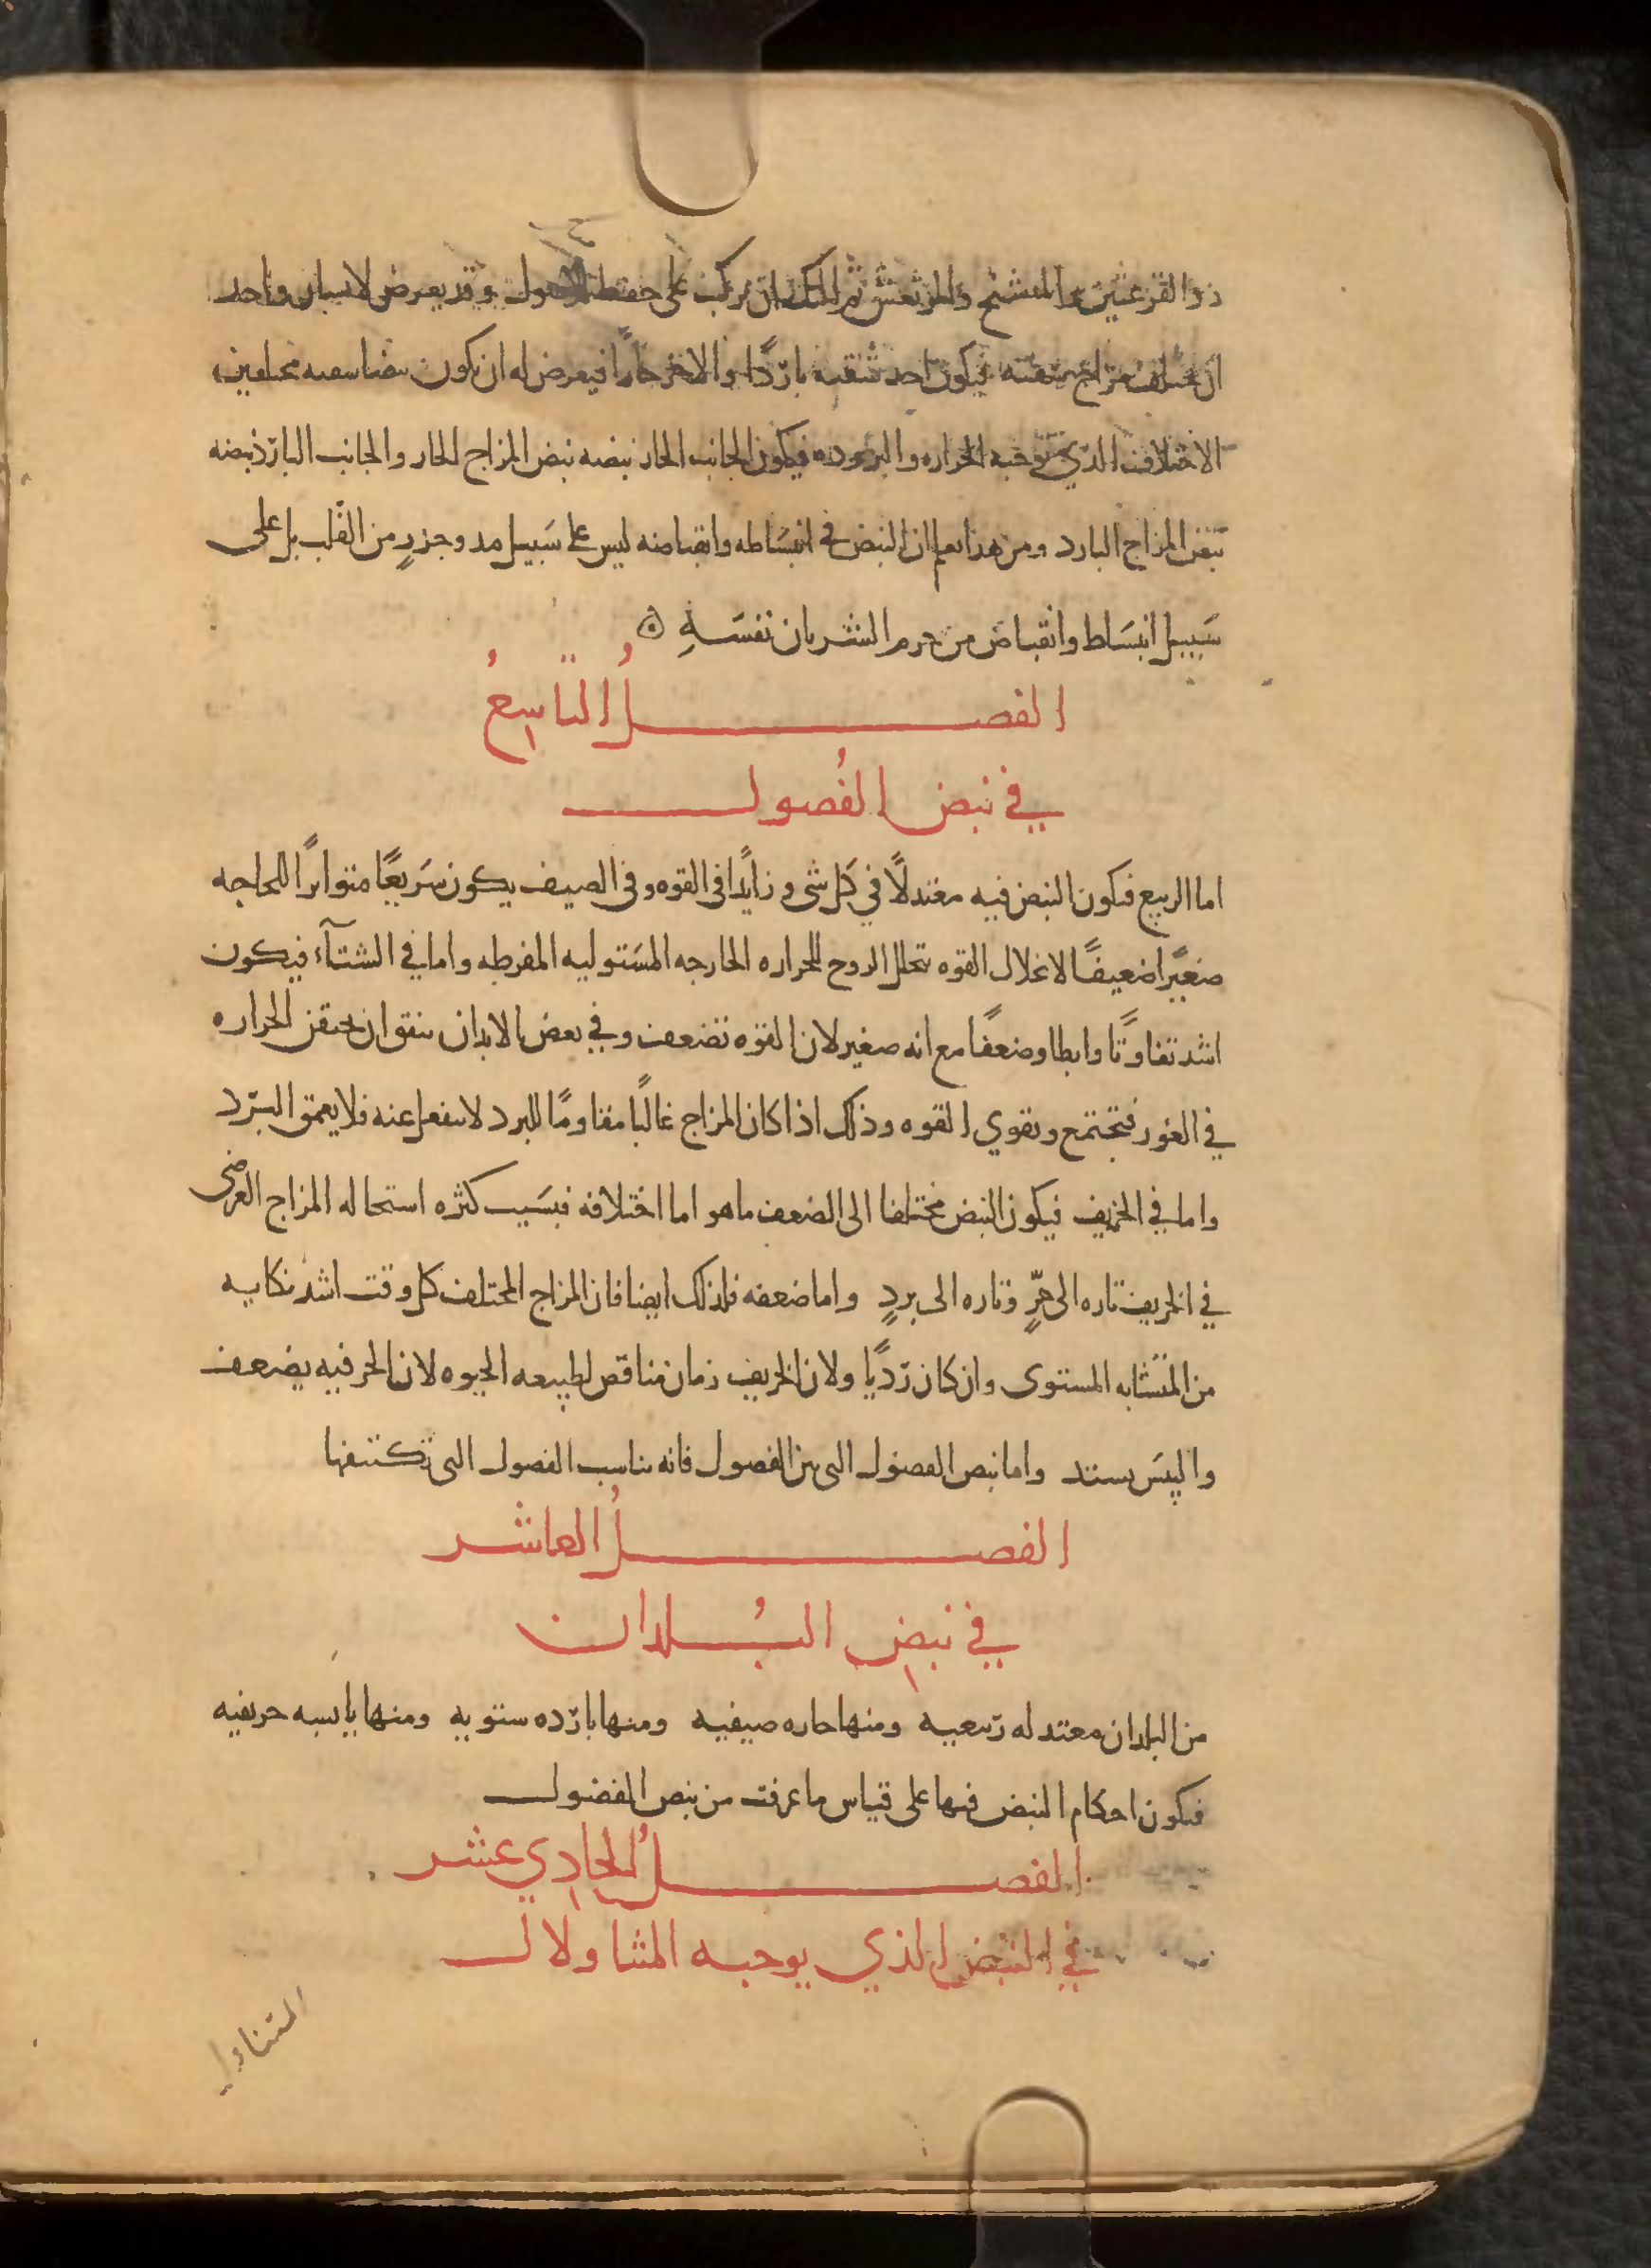 ذو القرعتين والمتشنج والمرتعش ثم لك ان تركب على حفظ الاصول وقد يعرض لانسان واحد
ان يختلف مزاج شقيه فيكون احد شقيه باردًا والاخر حارًا فيعرض له ان تكون نبضا شقيه مختلفين
الاختلاف الذي توجبه الحراره والبروده فيكون الجانب الحار نبضه نبض المزاج الحار والجانب البارد نبضه
نبض المزاج البارد ومن هذا يعلم ان النبض في انبسَاطه وانقباضه ليس على سَبيل مد وجزرٍ من القلب بل على
سَبيل انبسَاط وانقباض من جرم الشريان نفسَهِ
الفصلُ التاسِعُ
في نبض الفُصول
اما الربيع فيكون النبض فيه معتدلًا في كل شي وزايدًا في القوه وفي الصيف يكون سَريعًا متواترًا للحاجه
صغيرًا ضعيفًا لانحلال القوه بتحلل الروح للحراره الخارجه المسَتوليه المفرطه واما في الشتآء فيكون
اشد تفاوتًا وابطا وضعفًا مع انه صغير لان القوه تضعف وفي بعض الابدان يتفق ان يحتقن الحراره
في الغور فتجتمع وتقوي القوه وذلك اذا كان المزاج غالبًا مقاومًا للبرد لا ينفعل عنه فلا يعمق البرد
واما في الخريف فيكون النبض مختلفا الى الضعف ما هو اما اختلافه فبسَبب كثره استحاله المزاج العرضي
في الخريف تاره الى حرٍّ وتاره الى بردٍ واما ضعفه فلذلك ايضا فان المزاج المختلف كل وقت اشد نكايه
من المتشابه المستوى وان كان رديًا ولان الخريف زمان مناقض لطبيعه الحيوه لان الحر فيه يضعف
واليبسَ يستد واما نبض الفصول التى بين الفصول فانه يناسب الفصول التى تكتنفها
الفصلُ العاشر
في نبضِ البُلدان
من البلدان معتدله ربيعيه ومنها حاره صيفيه ومنها بارده ستويه ومنها يابسه خريفيه
فيكون احكام النبض فيها على قياس ما عرفت من نبض الفصول
الفصلُ الحادِي عشر
في النبض الذي يوجبه المتناولات
المتناولا